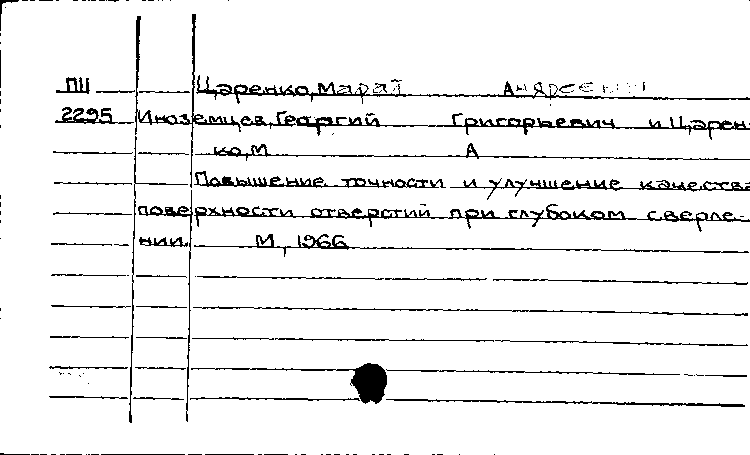 П11 Царенко, Марат
2295 Иноземцев, Георгий Григорьевич и Царен-
ко, М А
Повышение точности и улучшение качества
поверхности отверстий при глубоком сверле-
нии. М., 1966